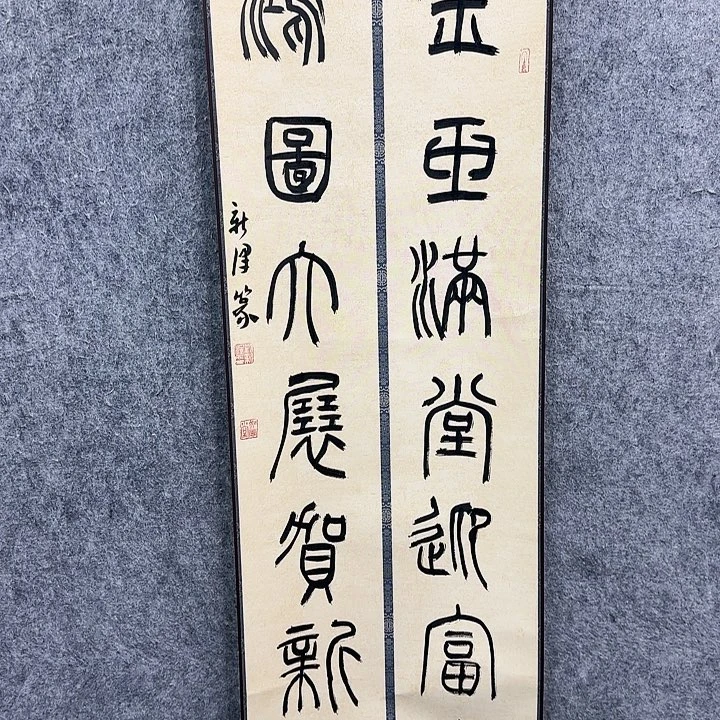 金玉滿堂迎富
鴻圖大展賀新
新篆